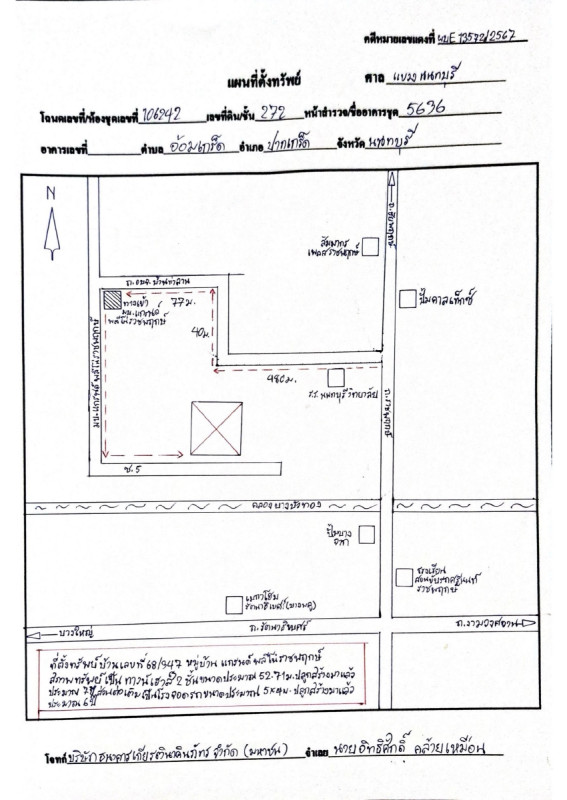 คดีหมายเลขแดงที่ ผบE 13572/2567
แผนที่ตั้งทรัพย์
ศาล แขวงนนทบุรี
โฉนดเลขที่/ห้องชุดเลขที่ 106242 เลขที่ดิน/ชั้น 272 หน้าสำรวจ/ชื่ออาคารชุด 5636
อาคารเลขที่ ตำบล อ้อมเกร็ด อำเภอ ปากเกร็ด จังหวัด นนทบุรี
N
ถ.ชัยพฤกษ์
สัมมากร
เพลส ราชพฤกษ์
ถ.อบจ.บ้านท่าลาน
ปั๊มคาลเท็กซ์
ทางเข้า
77ม.
มบ.แกรนด์
พลีโน่ราชพฤกษ์
40ม.
มบ.แกรนด์ พลีโน่ราชพฤกษ์
480ม.
ร.ร.นนทบุรีวิทยาลัย
ถ.ราชพฤกษ์
ซ.5
คลองบางบัวทอง
ปั๊มบาง
จาก
ราชพฤกษ์
เมกาโฮม
รัตนาธิเบศร์(บางพลู)
บางใหญ่
ถ.รัตนาธิเบศร์
ที่ตั้งทรัพย์บ้านเลขที่ 68/947 หมู่บ้าน แกรนด์ พลีโน่ราชพฤกษ์
สภาพทรัพย์เป็น ทาวน์เฮาส์ 2 ชั้นขนาดประมาณ 5.2*71ม. ปลูกสร้างมาแล้ว
ประมาณ 7ปี ส่วนต่อเติมเป็นโรงจอดรถขนาดประมาณ 5*4ม. ปลูกสร้างมาแล้ว
ประมาณ 6ปี
โจทก์ บริษัทธนาคารเกียรตินาคินภัทร จำกัด (มหาชน) จำเลย นายอิทธิศักดิ์ คล้ายเหมือน